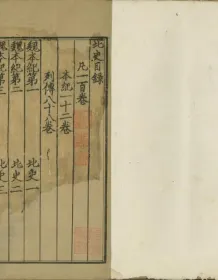 北史目錄
凡一百卷
本紀一十二卷
列傳八十八卷
魏本紀第一 北史一
魏本紀第二 北史二
魏本紀第三 北史三